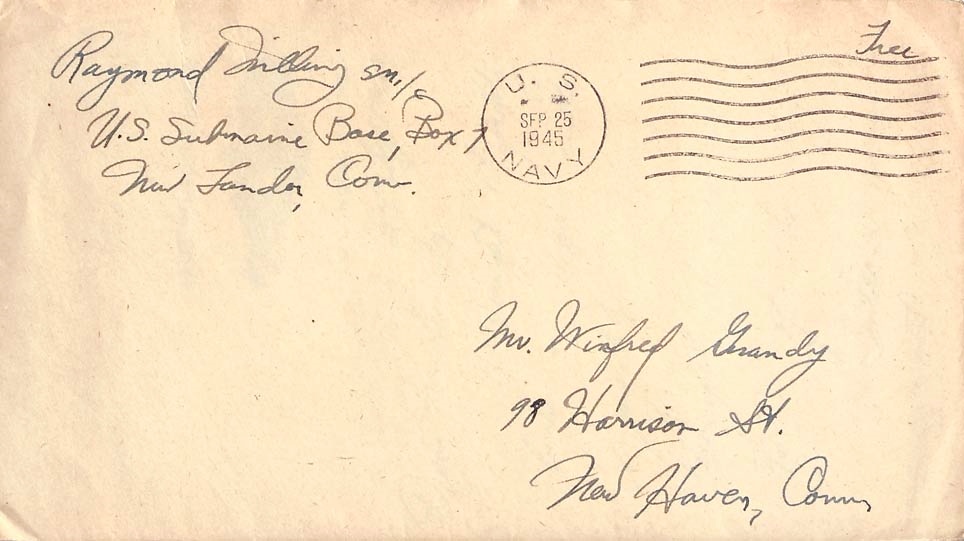 Free
Raymond Milling sm1/c
U.S. Submaine Base, Box 7
New London, Conn.
U. S.
SEP 25
1945
NAVY
Mr. Winfred Grandy
98 Harrison St.
New Haven, Conn.